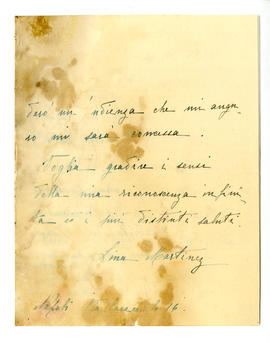 derò un' udienza che mi augu-
ro mi sarà concessa.
Voglia gradire i sensi
della mia riconoscenza infini-
ta ed i più distinti saluti.
Lina Martinez
Napoli